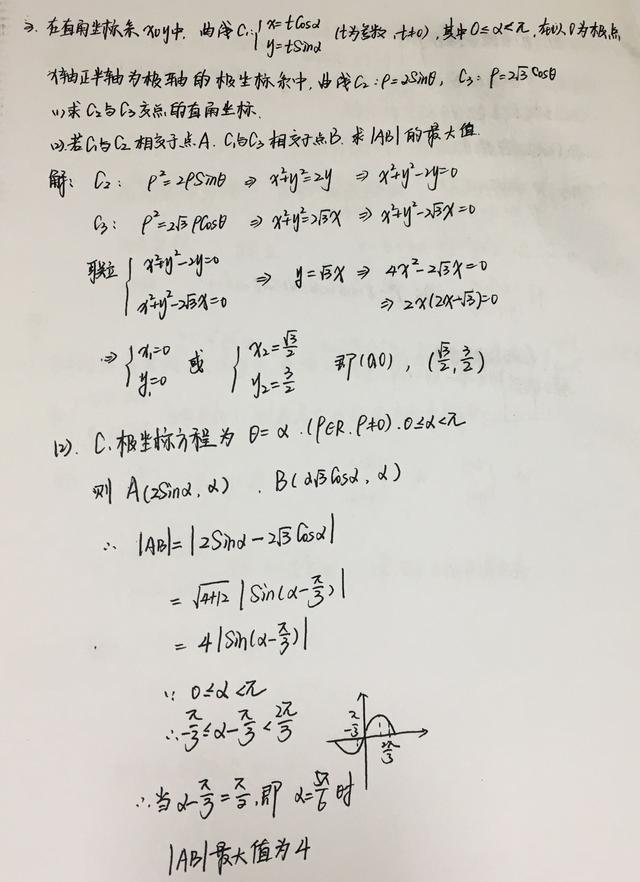 3. 在直角坐标系xoy中, 曲线C₁: { x=tCosα y=tSinα (t为参数, t≠0), 其中0≤α<π, 在以0为极点
x轴正半轴为极轴的极坐标系中, 曲线C₂: ρ=2Sinθ, C₃: ρ=2√3 Cosθ
(1)求C₂与C₃交点的直角坐标.
(2).若C₁与C₂相交于点A. C₁与C₃相交于点B. 求|AB|的最大值.
解: C₂: ρ²=2ρSinθ ⇒ x²+y²=2y ⇒ x²+y²-2y=0
C₃: ρ²=2√3 ρCosθ ⇒ x²+y²=2√3x ⇒ x²+y²-2√3x=0
联立 { x²+y²-2y=0 x²+y²-2√3x=0 ⇒ y=√3x ⇒ 4x²-2√3x=0
⇒ 2x(2x-√3)=0
⇒ { x₁=0 y₁=0 或 { x₂=√3/2 y₂=3/2 即(0,0), (√3/2, 3/2)
(2). C₁极坐标方程为 θ=α.(ρ∈R. ρ≠0). 0≤α<π
则 A(2Sinα, α) . B(2√3Cosα, α)
∴ |AB|=|2Sinα-2√3Cosα|
=√4+12 |Sin(α-π/3)|
= 4|Sin(α-π/3)|
∵ 0≤α<π
∴ -π/3≤α-π/3<2π/3
-π/3
2π/3
∴当α-π/3=π/2, 即 α=5π/6时
|AB|最大值为4